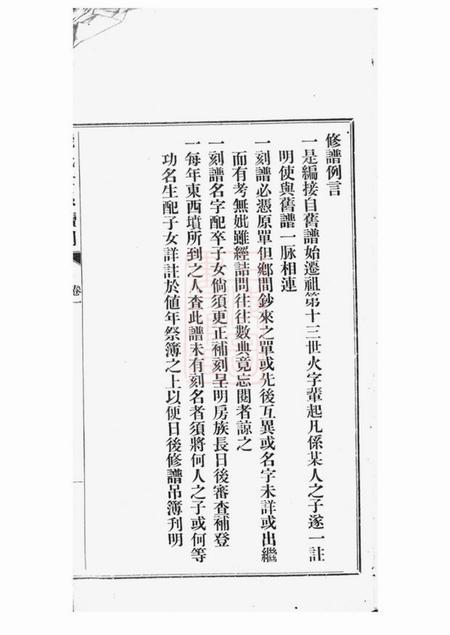 修譜例言
一是編接自舊譜始遷祖第十三世火字輩起凡係某人之子遂一註
明使與舊譜一脉相連
一刻譜必憑原單但鄉間鈔來之單或先後互異或名字未詳或出繼
而有考無妣雖經詰問往往數典竟忘閱者諒之
一刻譜名字配卒子女倘須更正補刻呈明房族長日後審查補登
一每年東西墳所到之人查此譜未有刻名者須將何人之子或何等
功名生配子女詳註於值年祭簿之上以便日後修譜吊簿刋明
卷一